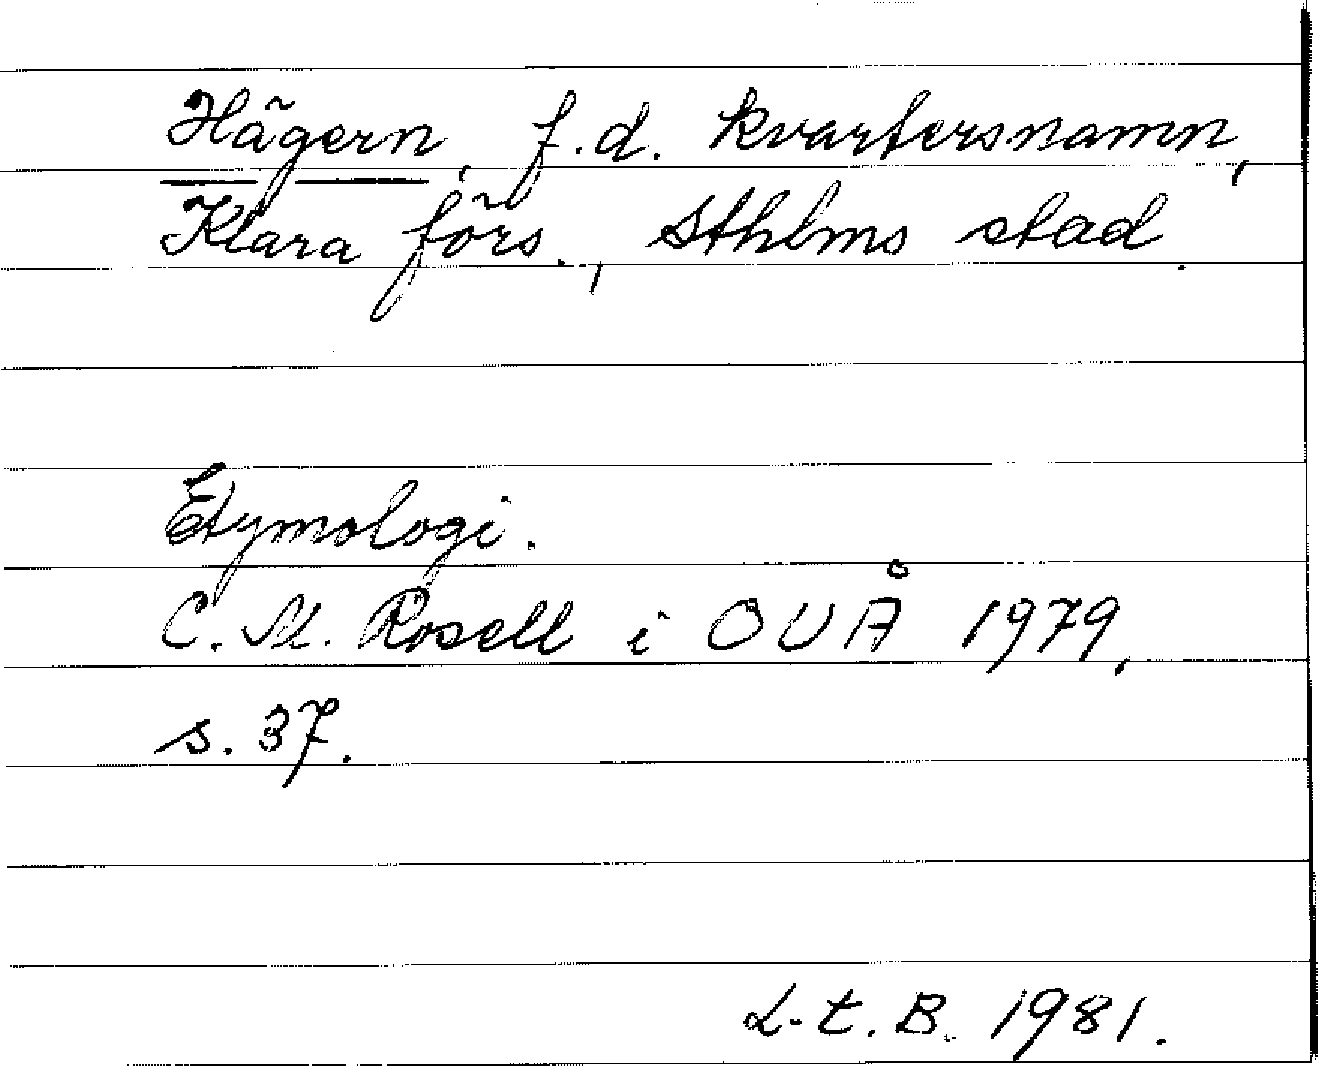 Hägern, f.d. kvartersnamn,
Klara förs., Sthlms stad.
Etymologi.
C. M. Rosell i OUÅ 1979,
s. 37.
L. t. B. 1981.